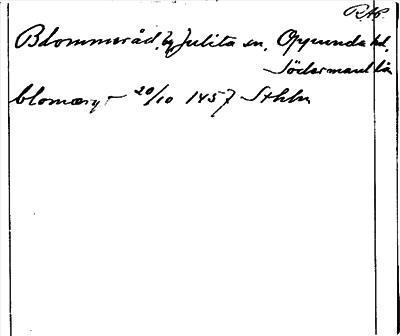 RAP.
Blommeråd, by Julita sn, Oppunda hd,
Södermanl. län
blomæryt 20/10 1457 Sthlm